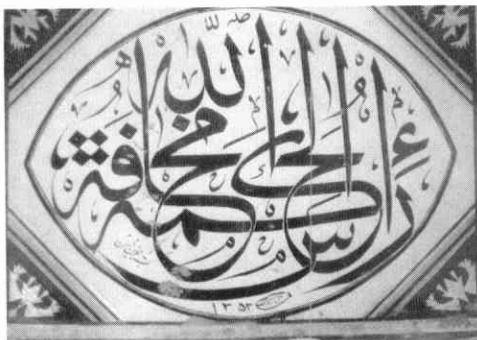 رأس الحكمة مخافة الله
١٣٥٢